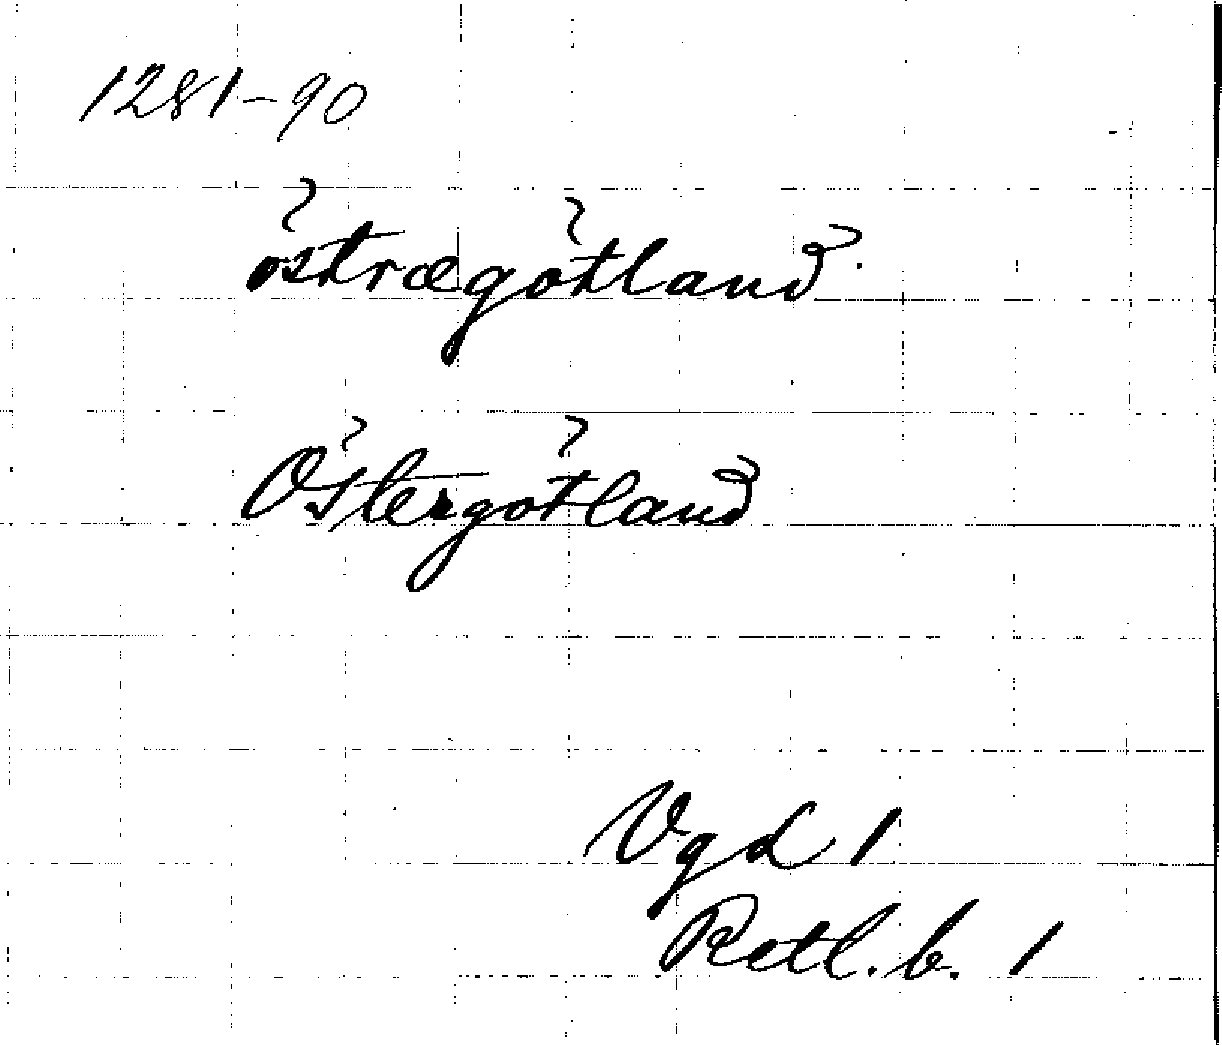 1281-90
östrægötland.
Östergötland
Vgd 1
Retl. b. 1